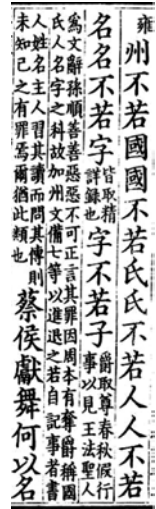 雍
州不若國國不若氏氏不若人人不若
名名不若字
皆取精
詳録也
字不若子
爵取尊春秋假行
事以見王法聖人
爲文辭孫順善善惡惡不可正言其罪因周本有奪爵稱國
氏人名字之科故加州文備七等以進退之若自記事者書
人姓名主人習其讀而問其傳則
未知己之有罪焉爾猶此類也
蔡侯獻舞何以名